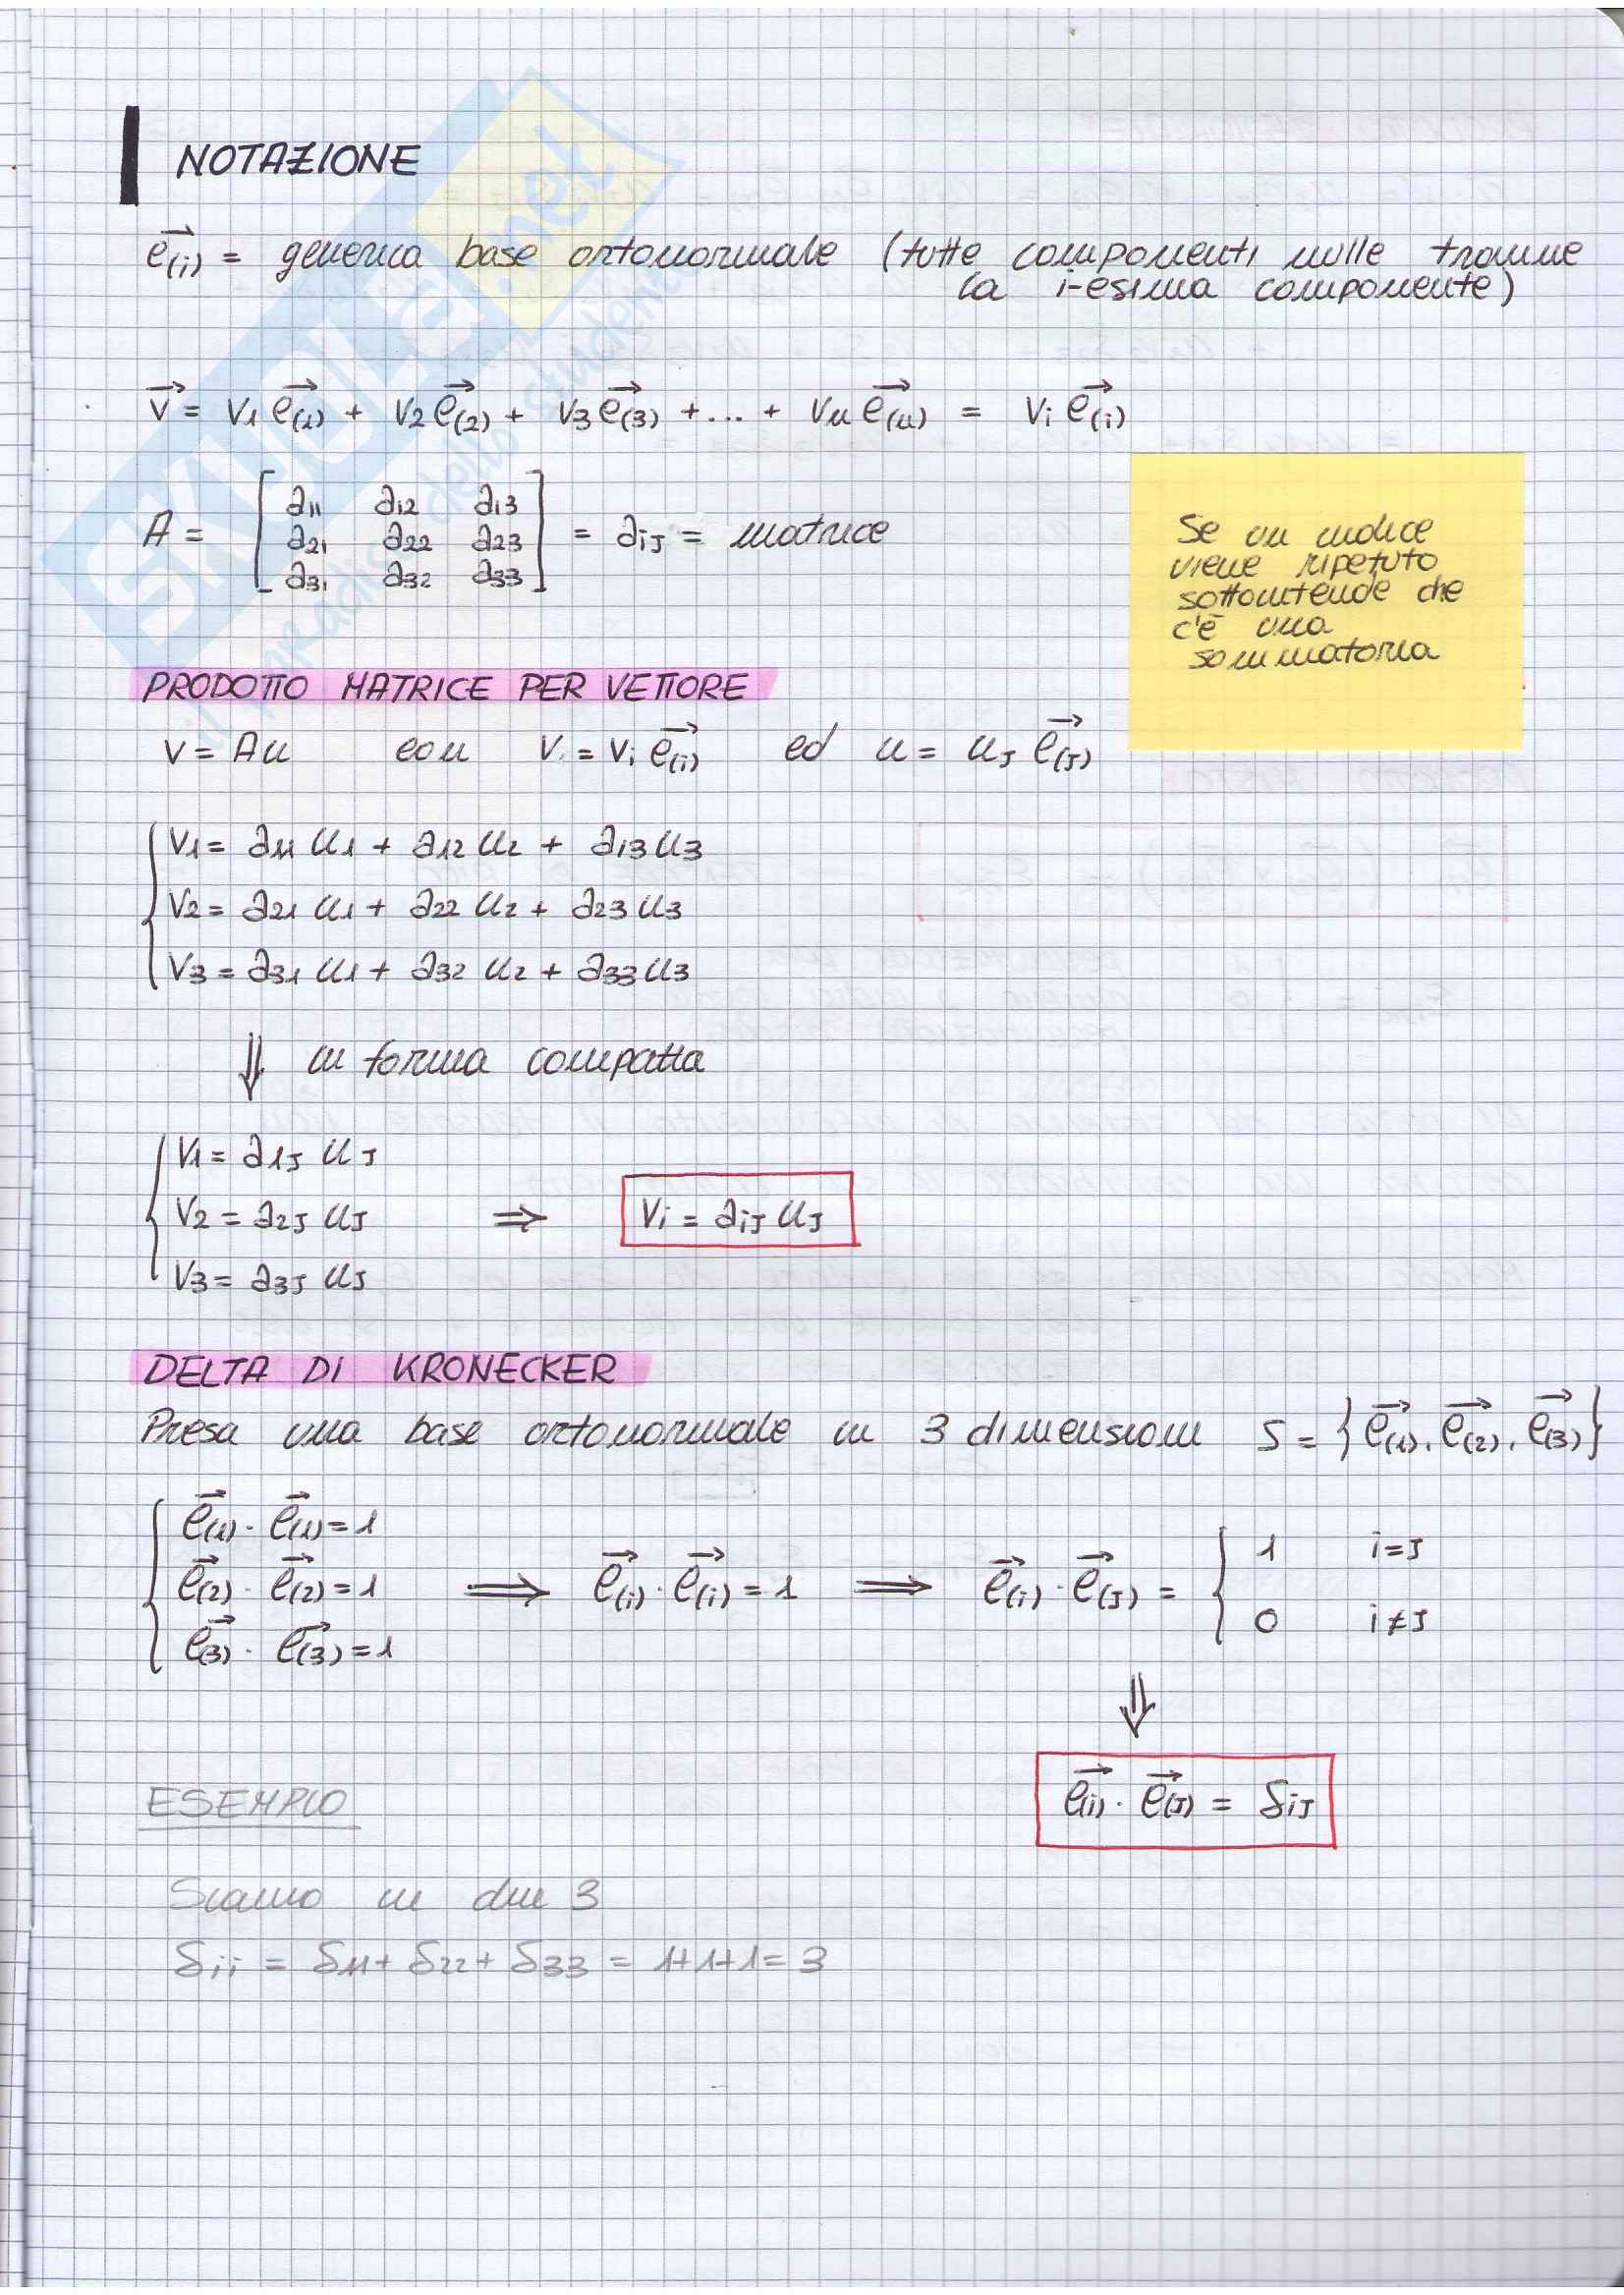 NOTAZIONE
e⃗(i) = generica base ortonormale (tutte componenti nulle tranne
la i-esima componente)
v⃗ = v1 e⃗(1) + v2 e⃗(2) + v3 e⃗(3) + ... + vn e⃗(n) = vi e⃗(i)
A = [ a11 a12 a13
a21 a22 a23
a31 a32 a33 ] = aij = matrice
Se un indice
viene ripetuto
sottointende che
c'è una
sommatoria
PRODOTTO MATRICE PER VETTORE
v = Au con v = vi e⃗(i) ed u = uj e⃗(j)
v1 = a11 u1 + a12 u2 + a13 u3
v2 = a21 u1 + a22 u2 + a23 u3
v3 = a31 u1 + a32 u2 + a33 u3
⇓ in forma compatta
v1 = a1j uj
v2 = a2j uj ⇒ vi = aij uj
v3 = a3j uj
DELTA DI KRONECKER
Presa una base ortonormale in 3 dimensioni S = {e⃗(1), e⃗(2), e⃗(3)}
e⃗(1) · e⃗(1) = 1
e⃗(2) · e⃗(2) = 1 ⟹ e⃗(i) · e⃗(i) = 1 ⟹ e⃗(i) · e⃗(j) = { 1 i=j
0 i≠j
e⃗(3) · e⃗(3) = 1
⇓
e⃗(i) · e⃗(j) = δij
ESEMPIO
Siamo in dim 3
δii = δ11 + δ22 + δ33 = 1+1+1 = 3
SKUOLA.net
il paradiso dello studente